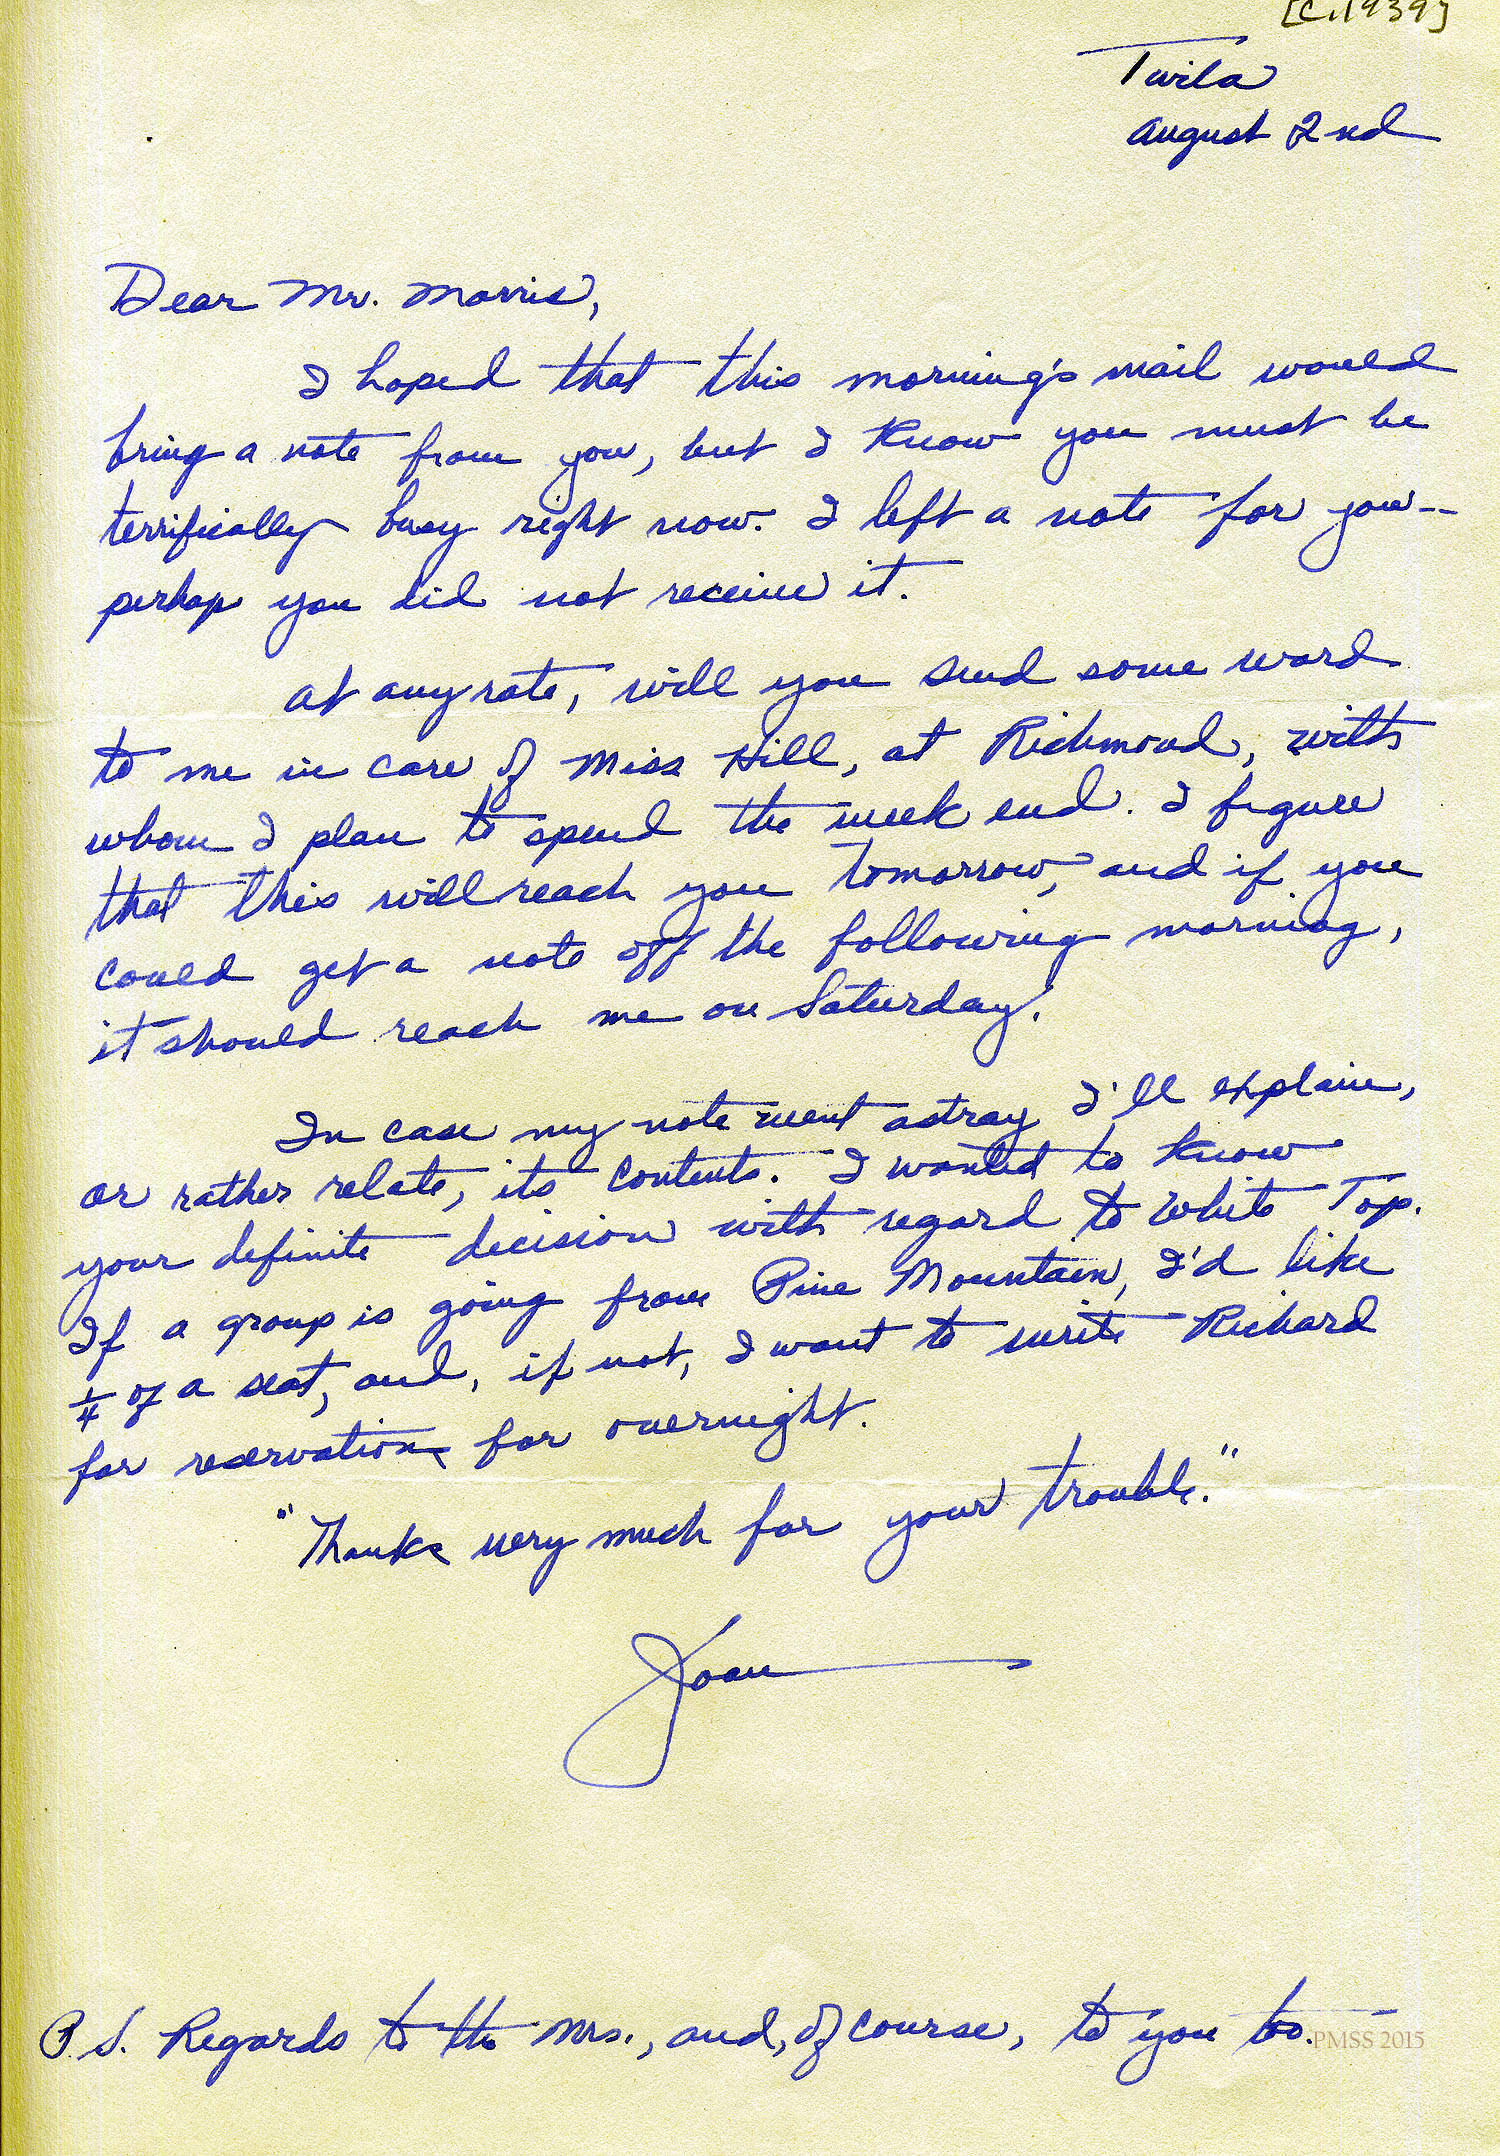 [c.1939]
Twila
August 2nd
Dear Mr. Morris,
I hoped that this morning's mail would
bring a note from you, but I know you must be
terrifically busy right now. I left a note for you--
perhaps you did not receive it.
At any rate, will you send some word
to me in care of Miss Hill, at Richmond, with
whom I plan to spend the week end. I figure
that this will reach you tomorrow, and if you
could get a note off the following morning,
it should reach me on Saturday.
In case my note went astray I'll explain,
or rather relate, its contents. I wanted to know
your definite decision with regard to White Top.
If a group is going from Pine Mountain, I'd like
1/4 of a seat, and, if not, I want to write Richard
for reservations for overnight.
"Thanks very much for your trouble."
Joan
P.S. Regards to the Mrs., and, of course, to you too.
PMSS 2015